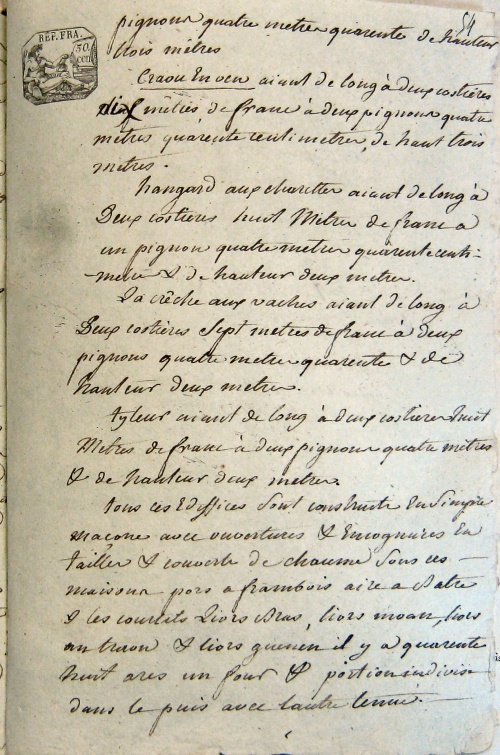 54
REP. FRA.
50
CEN
pignons quatre metres quarente de hauteur
trois mètres
Craou En ven aiant de long à deux costieres
dix mètres de franc à deux pignons quatre
mètres quarente centimetres, de haut trois
metres.
hangard aux charettes aiant de long à
Deux costieres huit Metres de franc a
un pignon quatre metres quarente centi-
metres & de hauteur deux metres.
La crêche aux vaches aiant de long à
Deux costieres Sept metres de franc à deux
pignons quatre metres quarente & de
hauteur deux metres.
tyleur aiant de long à deux costieres huit
Metres de franc à deux pignons quatre mètres
& de hauteur deux metres.
tous ces Ediffices Sont construits En Simple
maconne avec ouvertures & Encognures En
tailles & couverts de chaume Sous ces
maisons pors a frambois aire a Batre
& les courtils Liors Bras, liors moan, liors
an traon & liors guenen il y a quarente
huit ares un four & portion indivis
dans le puis avec l'autre tenue.